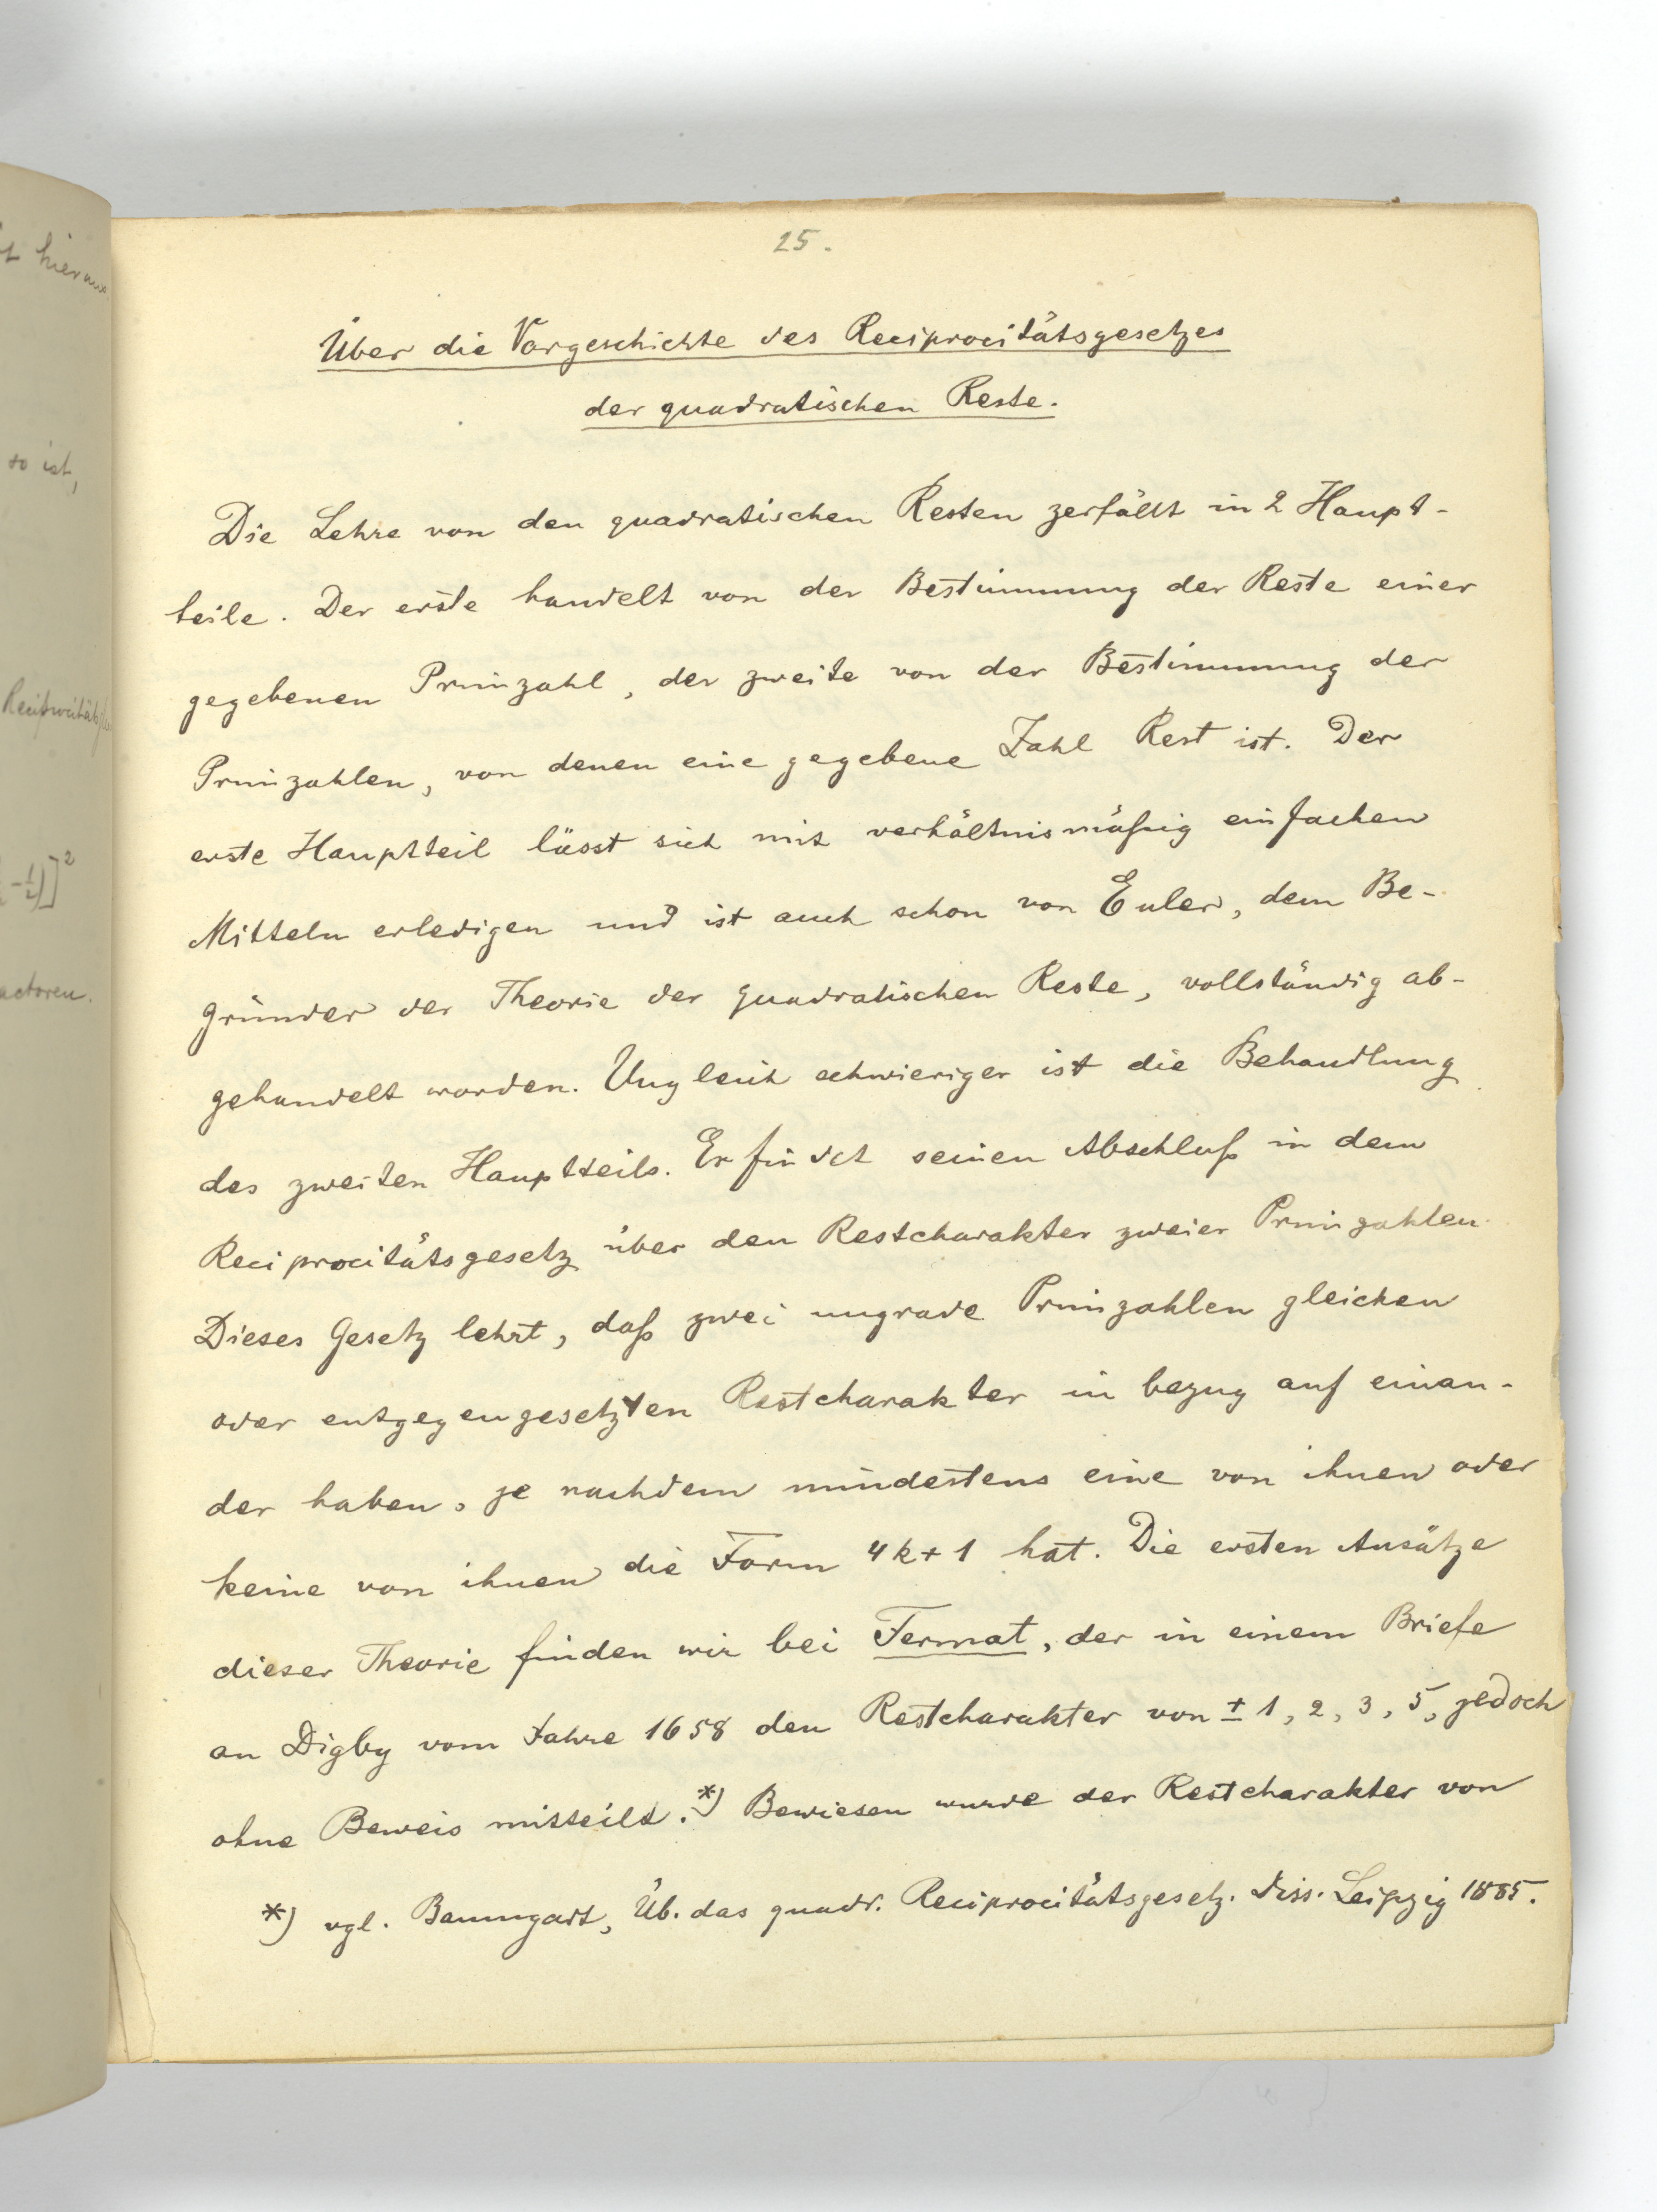 25.
Über die Vorgeschichte des Reciprocitätsgesetzes
der quadratischen Reste.
Die Lehre von den quadratischen Resten zerfällt in 2 Haupt-
teile. Der erste handelt von der Bestimmung der Reste einer
gegebenen Primzahl, der zweite von der Bestimmung der
Primzahlen, von denen eine gegebene Zahl Rest ist. Der
erste Hauptteil lässt sich mit verhältnismäßig einfachen
Mitteln erledigen und ist auch schon von Euler, dem Be-
gründer der Theorie der quadratischen Reste, vollständig ab-
gehandelt worden. Ungleich schwieriger ist die Behandlung
des zweiten Hauptteils. Er findet seinen Abschluß in dem
Reciprocitätsgesetz über den Restcharakter zweier Primzahlen.
Dieses Gesetz lehrt, daß zwei ungrade Primzahlen gleichen
oder entgegengesetzten Restcharakter in bezug auf einan-
der haben, je nachdem mindestens eine von ihnen oder
keine von ihnen die Form 4k+1 hat. Die ersten Ansätze
dieser Theorie finden wir bei Fermat, der in einem Briefe
an Digby vom Jahre 1658 den Restcharakter von ± 1, 2, 3, 5, jedoch
ohne Beweis mitteilt.*) Bewiesen wurde der Restcharakter von
*) vgl. Baumgart, Üb. das quadr. Reciprocitätsgesetz. Diss. Leipzig 1885.
hieraus
so ist,
-½)]²
actoren.